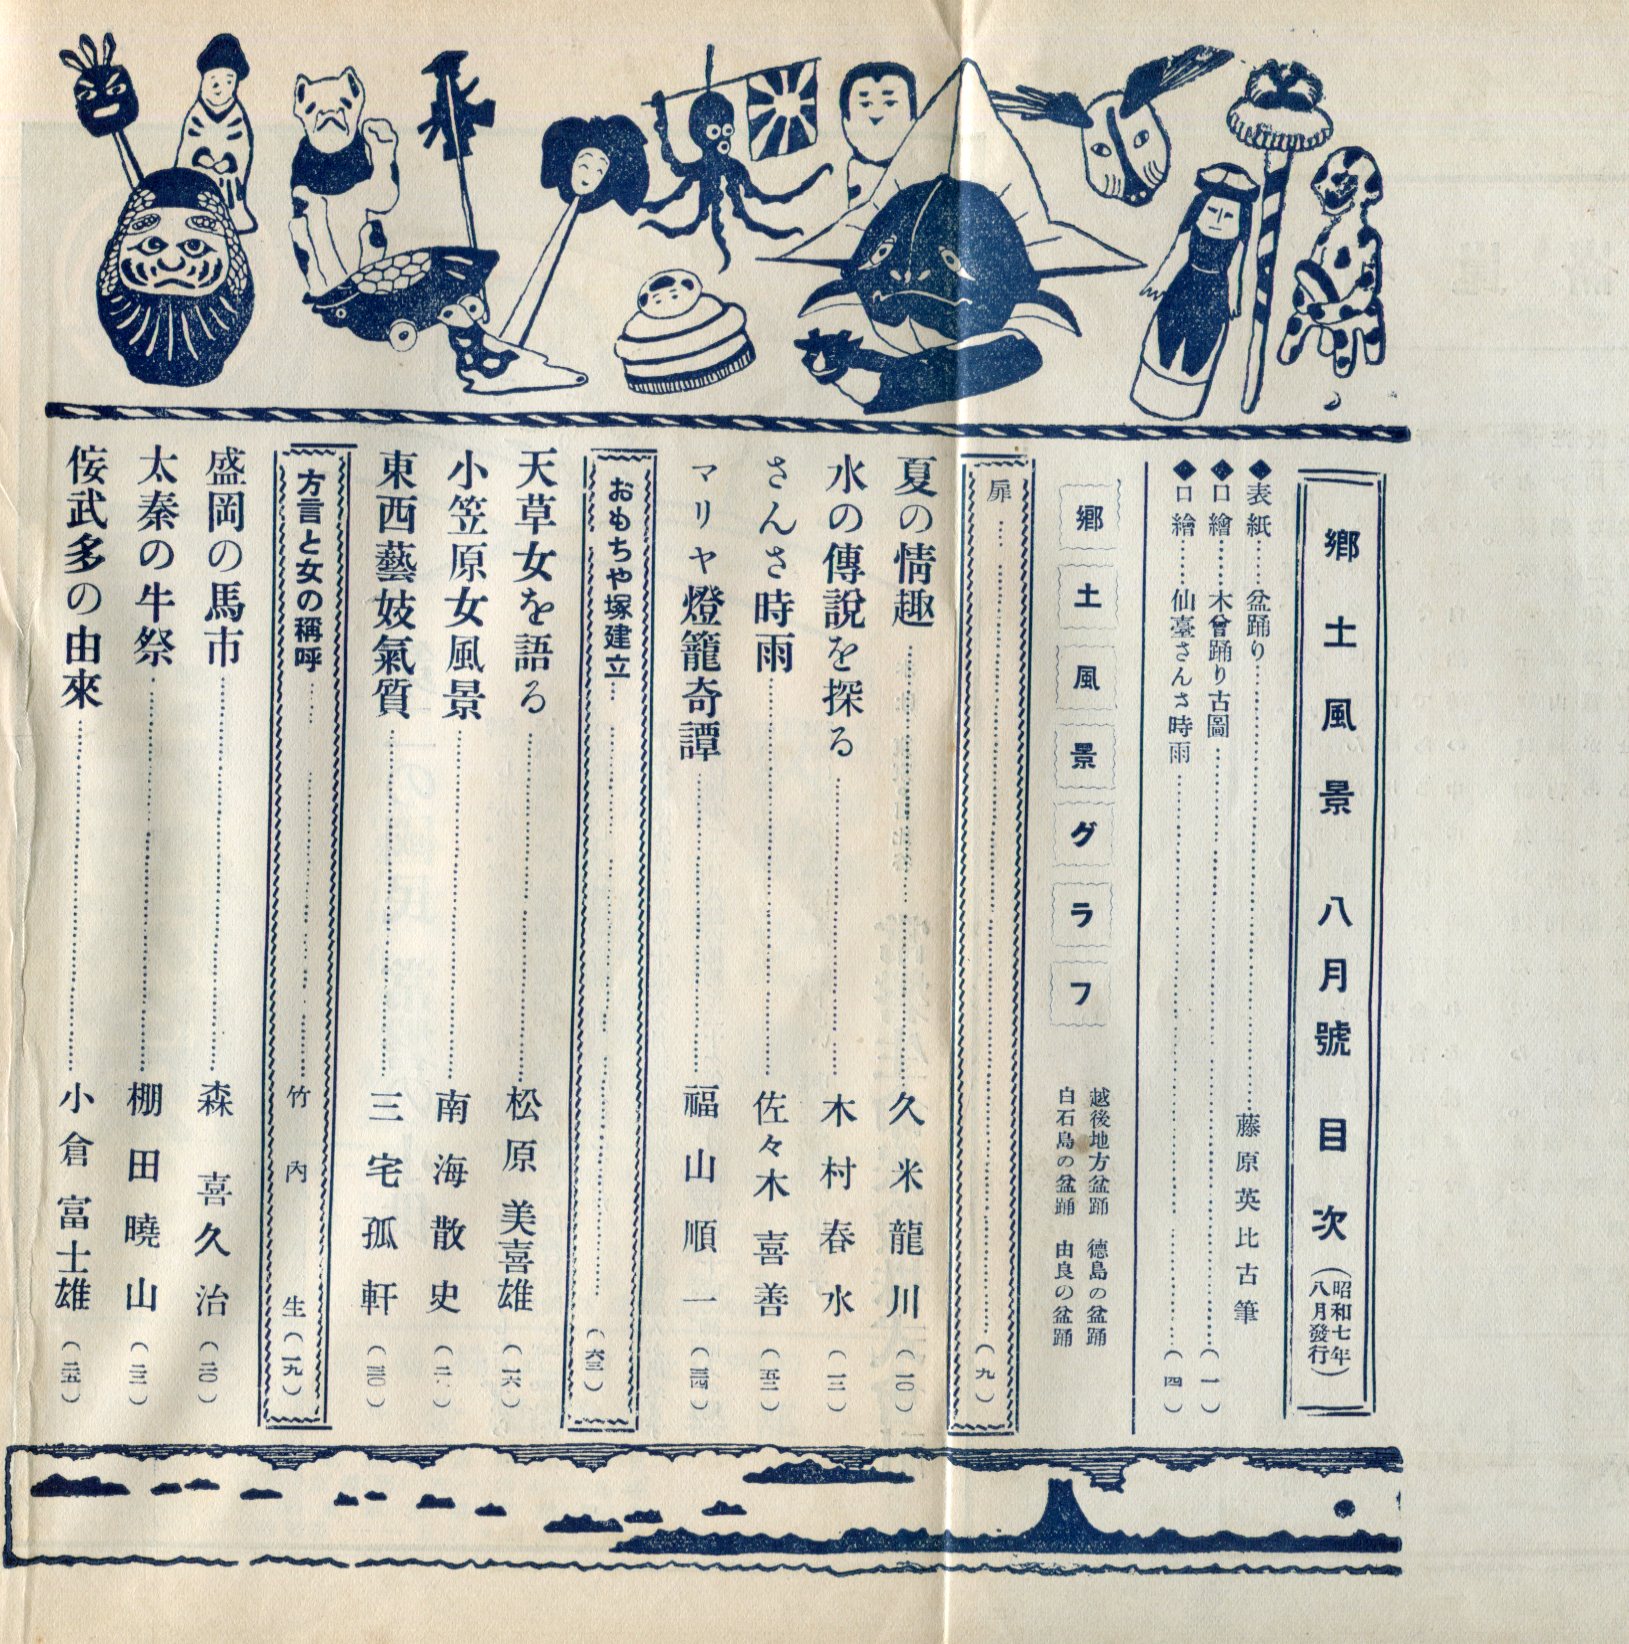 郷土風景 八月號 目次 (昭和七年八月發行)
◆表紙……盆踊り……藤原英比古筆
◆口繪……木曾踊り古圖……(一)
◆口繪……仙臺さんさ時雨……(四)
郷土風景グラフ
越後地方盆踊 德島の盆踊
白石島の盆踊 由良の盆踊
扉……(九)
夏の情趣……久米龍川(一〇)
水の傳説を探る……木村春水(一三)
さんさ時雨……佐々木喜善(五二)
マリヤ燈籠奇譚……福山順一(三四)
おもちや塚建立……(六三)
天草女を語る……松原美喜雄(一六)
小笠原女風景……南海散史
東西藝妓氣質……三宅孤軒(三〇)
方言と女の稱呼……竹内生(一九)
盛岡の馬市……森喜久治(二〇)
太秦の牛祭……棚田曉山(二三)
侫武多の由來……小倉富士雄(二五)